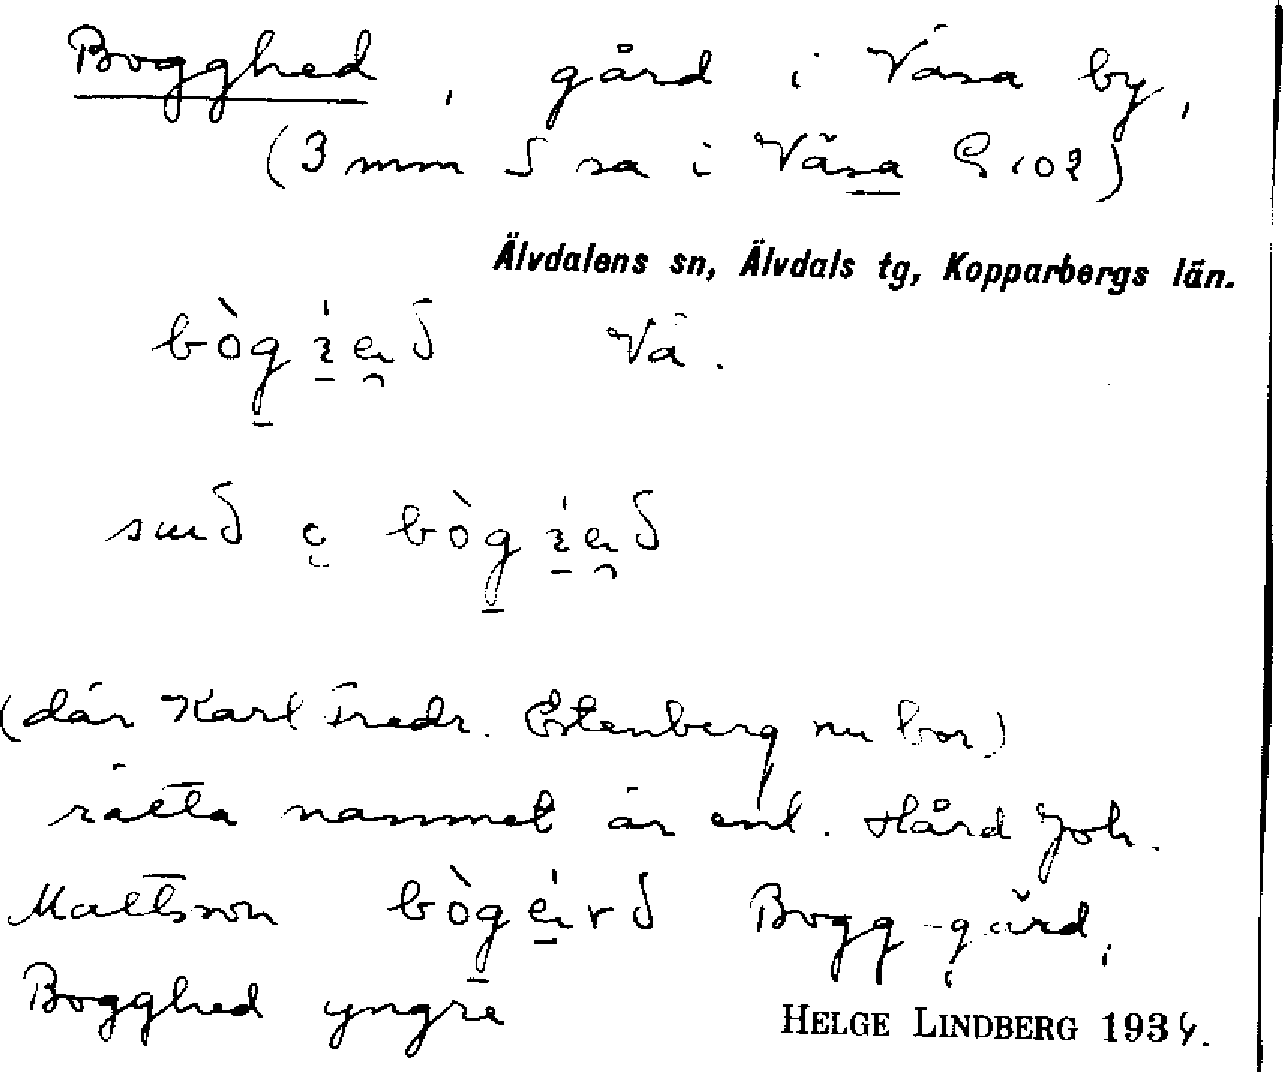 Bogghed, gård i Väsa by,
(3 mm S sa i Väsa G 102)
Älvdalens sn, Älvdals tg, Kopparbergs län.
Vä.
(där Karl Fredr. Estenberg nu bor)
rätta namnet är enl. Hård Joh.
Mattsson Bogg-gård,
Bogghed yngre
HELGE LINDBERG 1934.